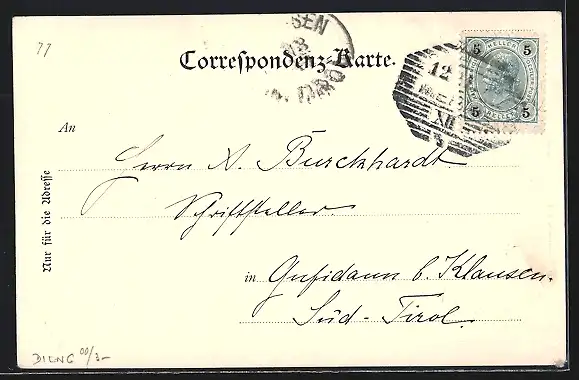 77
Correspondenz-Karte.
SEN
5 HELLER 5
12
XII
3
5 HELLER 5
An
Herrn A. Burckhardt
Schriftsteller.
in Gufidaun b. Klausen.
Süd-Tirol.
Nur für die Adresse
DILNG 00/3-